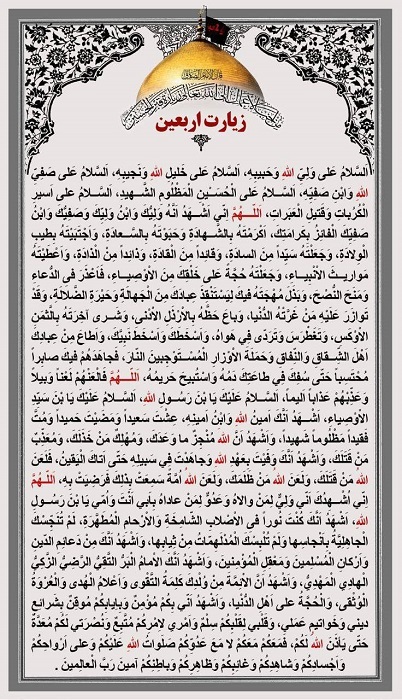 زیارت اربعین
اَلسَّلامُ عَلى وَلِيِّ اللهِ وَحَبيبِهِ، اَلسَّلامُ عَلى خَليلِ اللهِ وَنَجيبِهِ، اَلسَّلامُ عَلى صَفِيِّ
اللهِ وَابْنِ صَفِيِّهِ، اَلسَّلامُ عَلى الْحُسَيْنِ الْمَظْلُومِ الشَّهيدِ، اَلسَّلامُ على اَسيرِ
الْكُرُباتِ وَقَتيلِ الْعَبَراتِ، اَللّـهُمَّ اِنّي اَشْهَدُ اَنَّهُ وَلِيُّكَ وَابْنُ وَلِيِّكَ وَصَفِيُّكَ وَابْنُ
صَفِيِّكَ الْفائِزُ بِكَرامَتِكَ، اَكْرَمْتَهُ بِالشَّهادَةِ وَحَبَوْتَهُ بِالسَّعادَةِ، وَاَجْتَبَيْتَهُ بِطيبِ
الْوِلادَةِ، وَجَعَلْتَهُ سَيِّداً مِنَ السادَةِ، وَقائِداً مِنَ الْقادَةِ، وَذائِداً مِنْ الْذادَةِ، وَاَعْطَيْتَهُ
مَواريثَ الاَْنْبِياءِ، وَجَعَلْتَهُ حُجَّةً عَلى خَلْقِكَ مِنَ الاَْوْصِياءِ، فَاَعْذَرَ في الدُّعاءِ
وَمَنَحَ النُّصْحَ، وَبَذَلَ مُهْجَتَهُ فيكَ لِيَسْتَنْقِذَ عِبادَكَ مِنَ الْجَهالَةِ وَحَيْرَةِ الضَّلالَةِ، وَقَدْ
تَوازَرَ عَلَيْهِ مَنْ غَرَّتْهُ الدُّنْيا، وَباعَ حَظَّهُ بِالاَْرْذَلِ الاَْدْنى، وَشَرى آخِرَتَهُ بِالثَّمَنِ
الاَْوْكَسِ، وَتَغَطْرَسَ وَتَرَدّى في هَواهُ، وَاَسْخَطَكَ وَاَسْخَطَ نَبِيَّكَ، وَاَطاعَ مِنْ عِبادِكَ
اَهْلَ الشِّقاقِ وَالنِّفاقِ وَحَمَلَةَ الاَْوْزارِ الْمُسْتَوْجِبينَ النّارَ، فَجاهَدَهُمْ فيكَ صابِراً
مُحْتَسِباً حَتّى سُفِكَ في طاعَتِكَ دَمُهُ وَاسْتُبيحَ حَريمُهُ، اَللّـهُمَّ فَالْعَنْهُمْ لَعْناً وَبيلاً
وَعَذِّبْهُمْ عَذاباً اَليماً، اَلسَّلامُ عَلَيْكَ يَا بْنَ رَسُولِ اللهِ، اَلسَّلامُ عَلَيْكَ يَا بْنَ سَيِّدِ
الاَْوْصِياءِ، اَشْهَدُ اَنَّكَ اَمينُ اللهِ وَابْنُ اَمينِهِ، عِشْتَ سَعيداً وَمَضَيْتَ حَميداً وَمُتَّ
فَقيداً مَظْلُوماً شَهيداً، وَاَشْهَدُ اَنَّ اللهَ مُنْجِزٌ ما وَعَدَكَ، وَمُهْلِكٌ مَنْ خَذَلَكَ، وَمُعَذِّبٌ
مَنْ قَتَلَكَ، وَاَشْهَدُ اَنَّكَ وَفَيْتَ بِعَهْدِ اللهِ وَجاهَدْتَ في سَبيلِهِ حَتّى اَتاكَ الْيَقينُ، فَلَعَنَ
اللهُ مَنْ قَتَلَكَ، وَلَعَنَ اللهُ مَنْ ظَلَمَكَ، وَلَعَنَ اللهُ اُمَّةً سَمِعَتْ بِذلِكَ فَرَضِيَتْ بِهِ، اَللّـهُمَّ
اِنّي اُشْهِدُكَ اَنّي وَلِيٌّ لِمَنْ والاهُ وَعَدُوٌّ لِمَنْ عاداهُ بِاَبي اَنْتَ وَاُمّي يَا بْنَ رَسُولِ
اللهِ، اَشْهَدُ اَنَّكَ كُنْتَ نُوراً فى الاَْصْلابِ الشّامِخَةِ وَالاَْرْحامِ الْمُطَهَّرَةِ، لَمْ تُنَجِّسْكَ
الْجاهِلِيَّةُ بِاَنْجاسِها وَلَمْ تُلْبِسْكَ الْمُدْلَهِمّاتُ مِنْ ثِيابِها، وَاَشْهَدُ اَنَّكَ مِنْ دَعائِمِ الدّينِ
وَاَرْكانِ الْمُسْلِمينَ وَمَعْقِلِ الْمُؤْمِنينَ، وَاَشْهَدُ اَنَّكَ الاِْمامُ الْبَرُّ التَّقِيُّ الرَّضِيُّ الزَّكِيُّ
الْهادِي الْمَهْدِيُّ، وَاَشْهَدُ اَنَّ الاَْئِمَّةَ مِنْ وُلْدِكَ كَلِمَةُ التَّقْوى وَاَعْلامُ الْهُدى وَالْعُرْوَةُ
الْوُثْقى، وَالْحُجَّةُ على اَهْلِ الدُّنْيا، وَاَشْهَدُ اَنّي بِكُمْ مُؤْمِنٌ وَبِاِيابِكُمْ مُوقِنٌ بِشَرايِعِ
ديني وَخَواتيمِ عَمَلي، وَقَلْبي لِقَلْبِكُمْ سِلْمٌ وَاَمْري لاَِمْرِكُمْ مُتَّبِعٌ وَنُصْرَتي لَكُمْ مُعَدَّةٌ
حَتّى يَأْذَنَ اللهُ لَكُمْ، فَمَعَكُمْ مَعَكُمْ لا مَعَ عَدُوِّكُمْ صَلَواتُ اللهِ عَلَيْكُمْ وَعلى اَرْواحِكُمْ
وَاَجْسادِكُمْ وَشاهِدِكُمْ وَغائِبِكُمْ وَظاهِرِكُمْ وَباطِنِكُمْ آمينَ رَبَّ الْعالَمينَ .